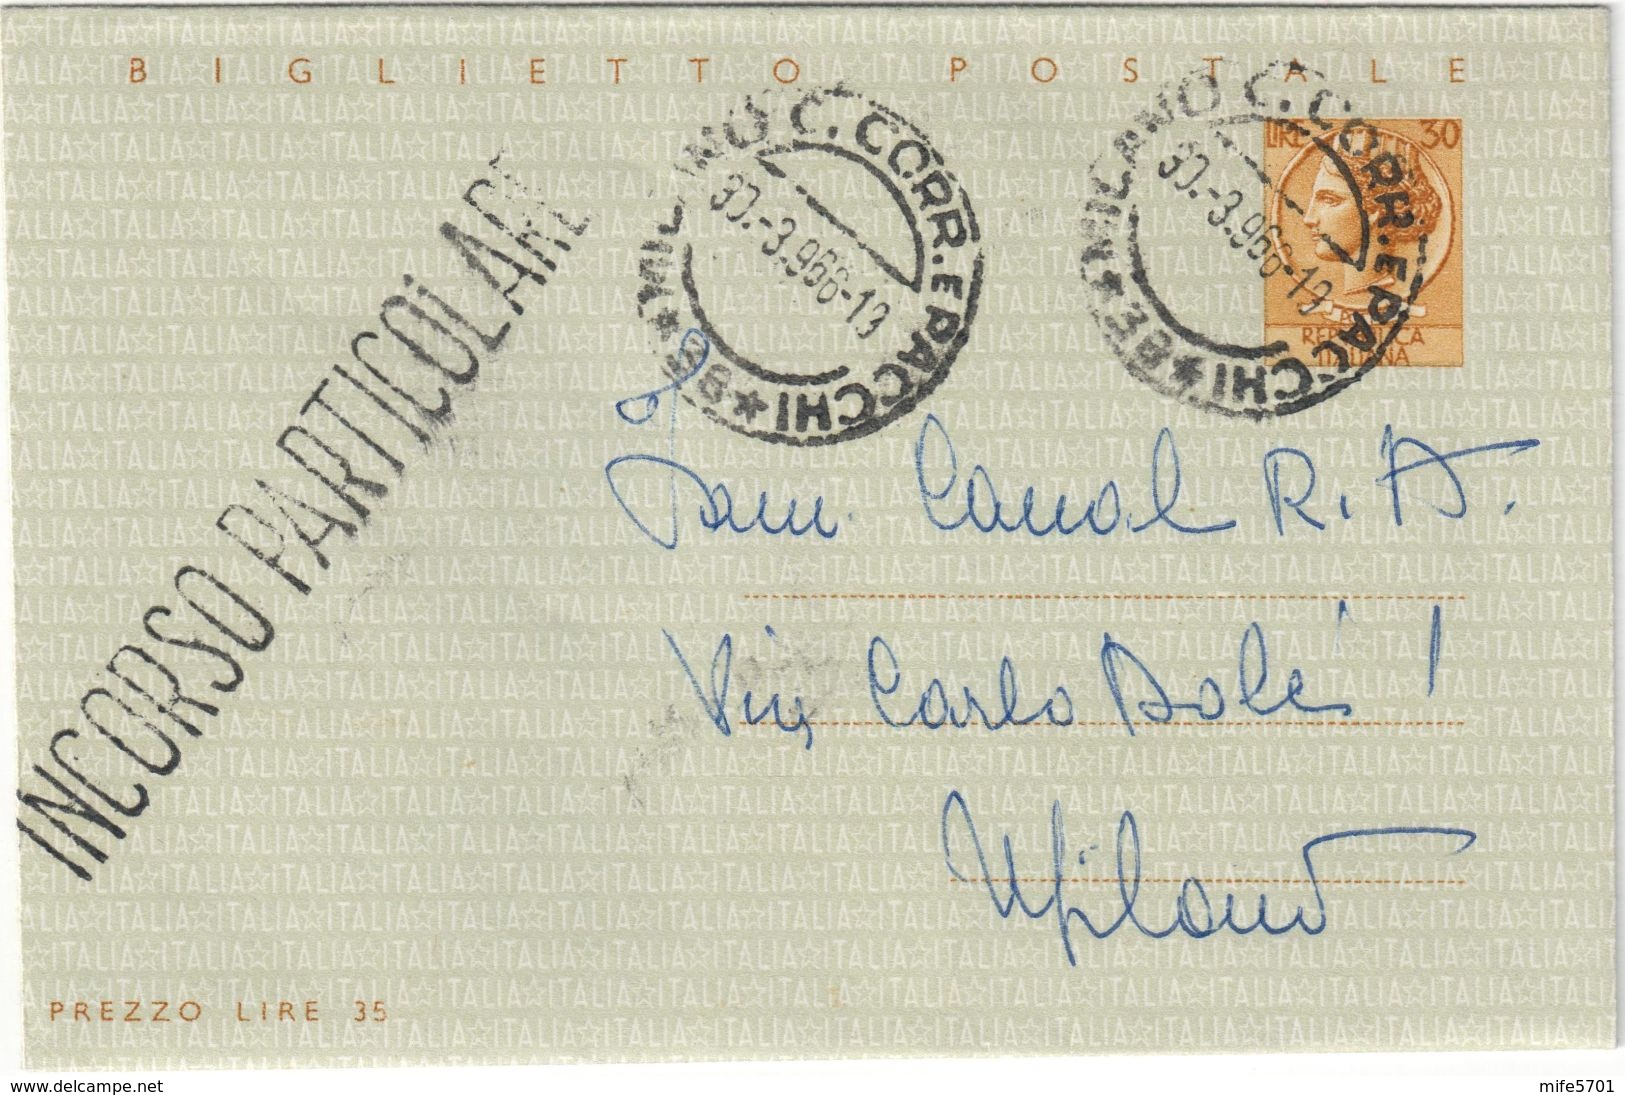 BIGLIETTO POSTALE
MILANO C. CORR. E PACCHI
30.-3.966-19
MILANO C. CORR. E PACCHI ★ 3B ★
30.-3.966-19
LIRE 30
REPUBBLICA
ITALIANA
INCORSO PARTICOLARE
Canal R.A.
Via Carlo Dolci 1
Milano
PREZZO LIRE 35
www.delcampe.net
mife5701